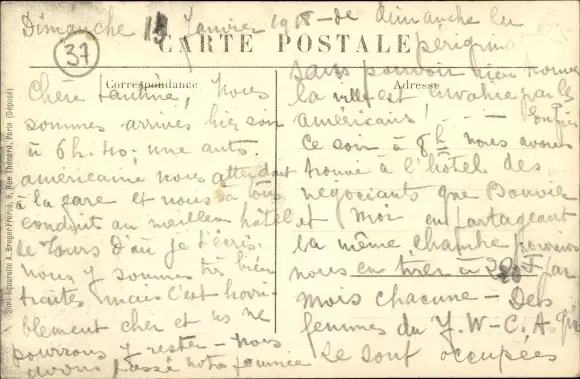 Dimanche 13 Janvier 1918 - de dimanche
37
CARTE POSTALE
Correspondance
Adresse
Simi-Aquarelle A. Breger Frères, 9, Rue Thénard, Paris (Déposé)
Chère, Nous
sommes arrivés hier soir
à 6h.40; une auto.
américaine nous attendait
à la gare et nous a
conduit au meilleur hôtel
de Tours d'où je t'écris.
Nous y sommes très bien
traités mais c'est horri-
blement cher et ns ne
pourrons y rester - nous
avons passé notre journée
sans pouvoir rien trouver
la ville est envahie par les
américains! -
Ce soir à 8h nous avons
trouvé à l'hôtel des
négociants que Bouvier
et moi en partageant
la même chambre pouvions
nous en tirer à F par
mois chacune - Des
femmes du Y.W.C.A qui
se sont occupées